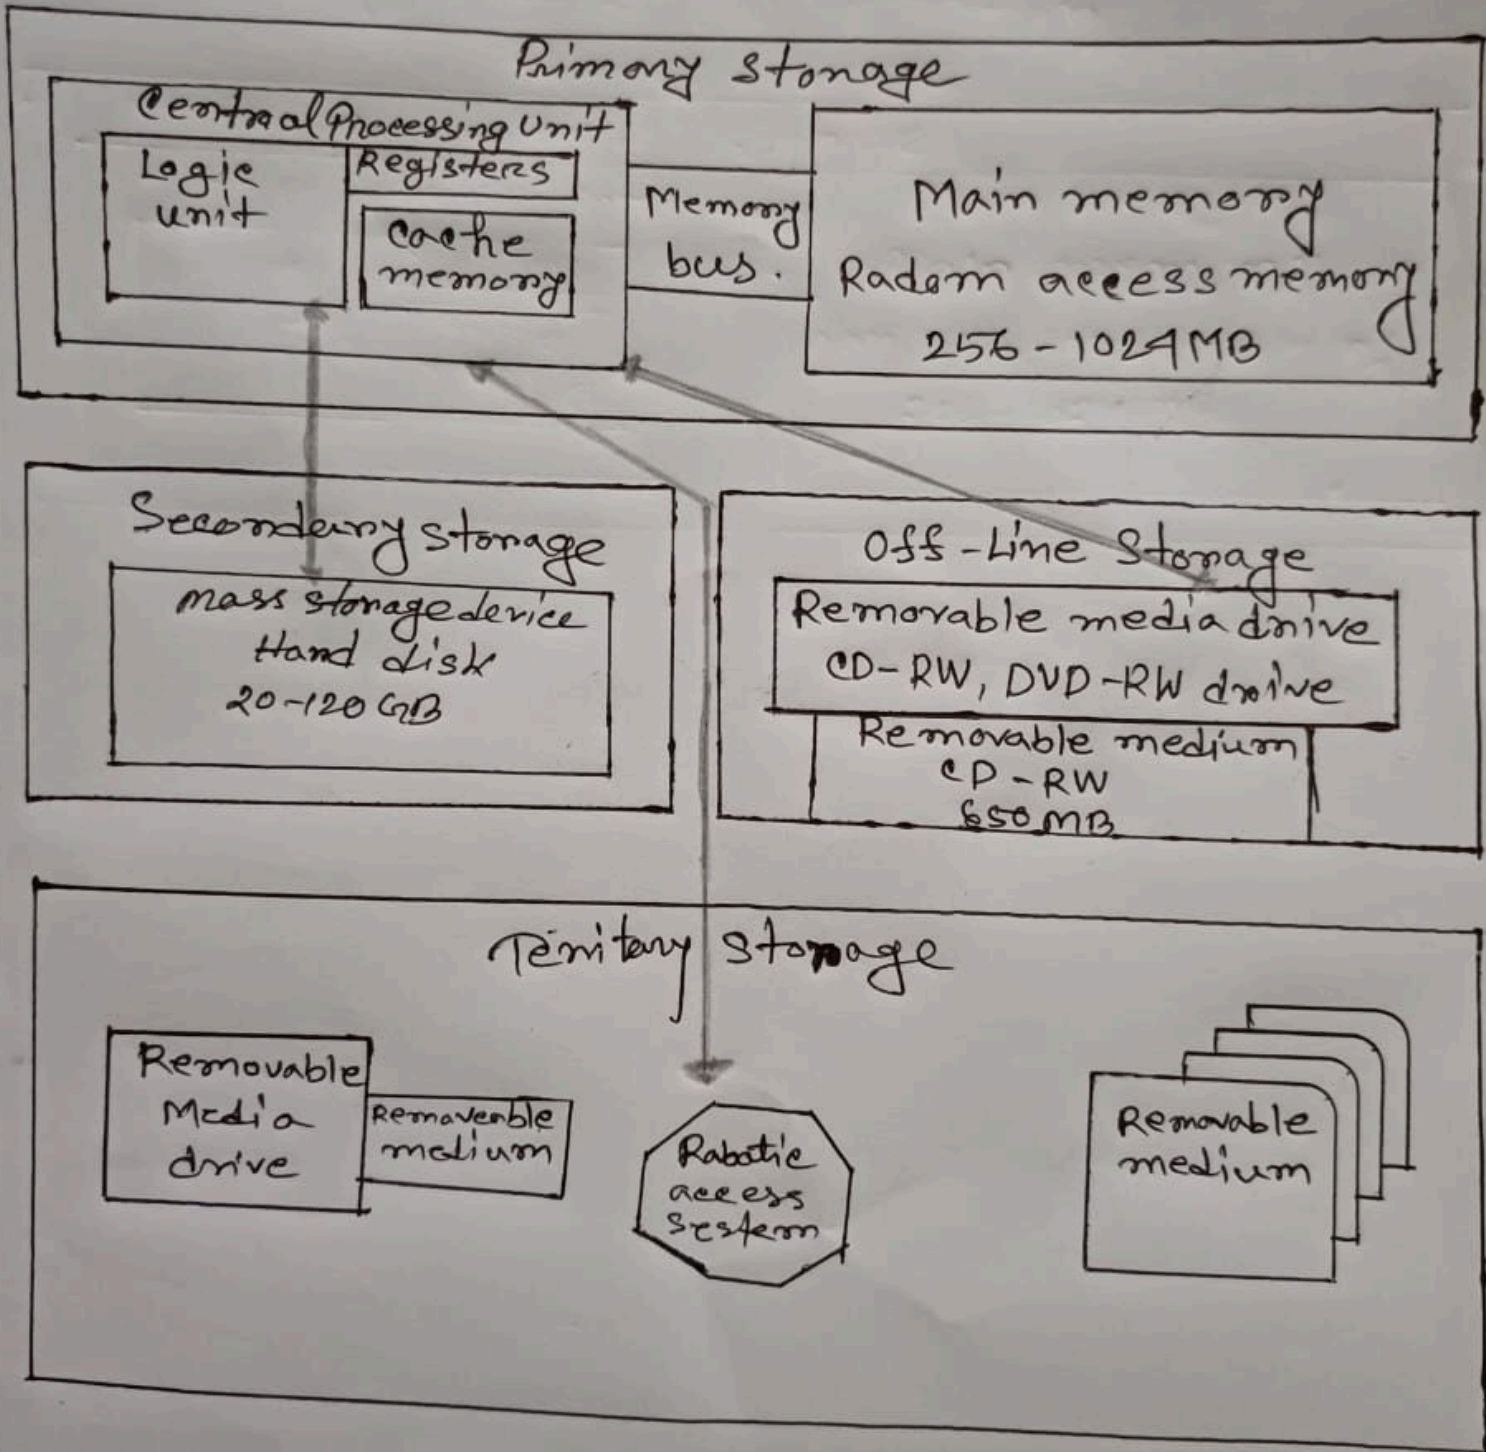 Primary Storage
Centraal Processing Unit
Logic
unit
Registers
Cache
memory
Memory
bus.
Main memory
Radom access memory
256-1024MB
Secondary Storage
mass storage device
Hard disk
20-120 GB
Off-Line Storage
Removable media drive
CD-RW, DVD-RW drive
Removable medium
CD-RW
650 MB
Teritary Storage
Removable
Media
drive
Remaveable
medium
Rabotic
access
System
Removable
medium